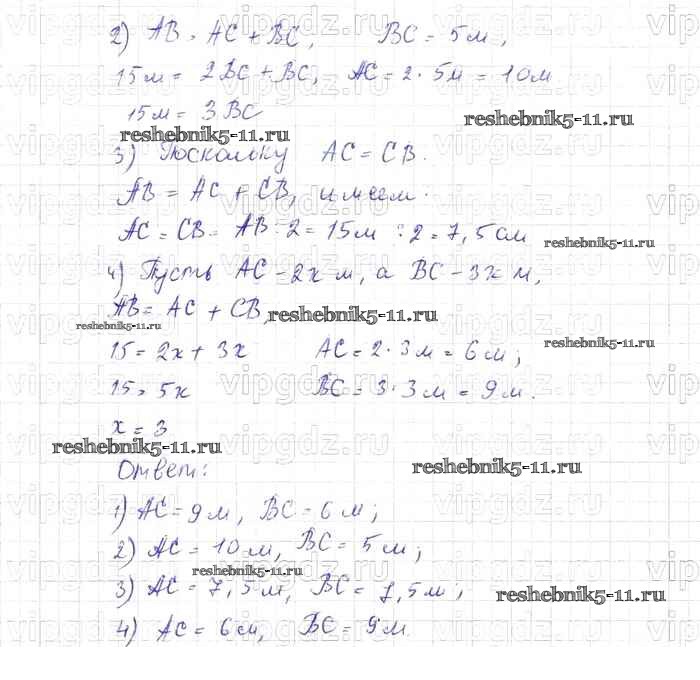 2) AB = AC + BC, BC = 5м,
15м = 2BC + BC, AC = 2 · 5м = 10м
15м = 3BC
reshebnik5-11.ru reshebnik5-11.ru
3) Поскольку AC = CB.
AB = AC + CB, имеем.
AC = CB = AB : 2 = 15м : 2 = 7,5см
reshebnik5-11.ru
4) Пусть AC - 2x м, а BC - 3x м,
AB = AC + CB,
reshebnik5-11.ru reshebnik5-11.ru
15 = 2x + 3x AC = 2 · 3м = 6м;
reshebnik5-11.ru
15 = 5x BC = 3 · 3м = 9м.
x = 3
reshebnik5-11.ru
Ответ: reshebnik5-11.ru
1) AC = 9м, BC = 6м;
2) AC = 10м, BC = 5м;
reshebnik5-11.ru
3) AC = 7,5м, BC = 7,5м;
reshebnik5-11.ru
4) AC = 6м, BC = 9м.
vipgdz.ru